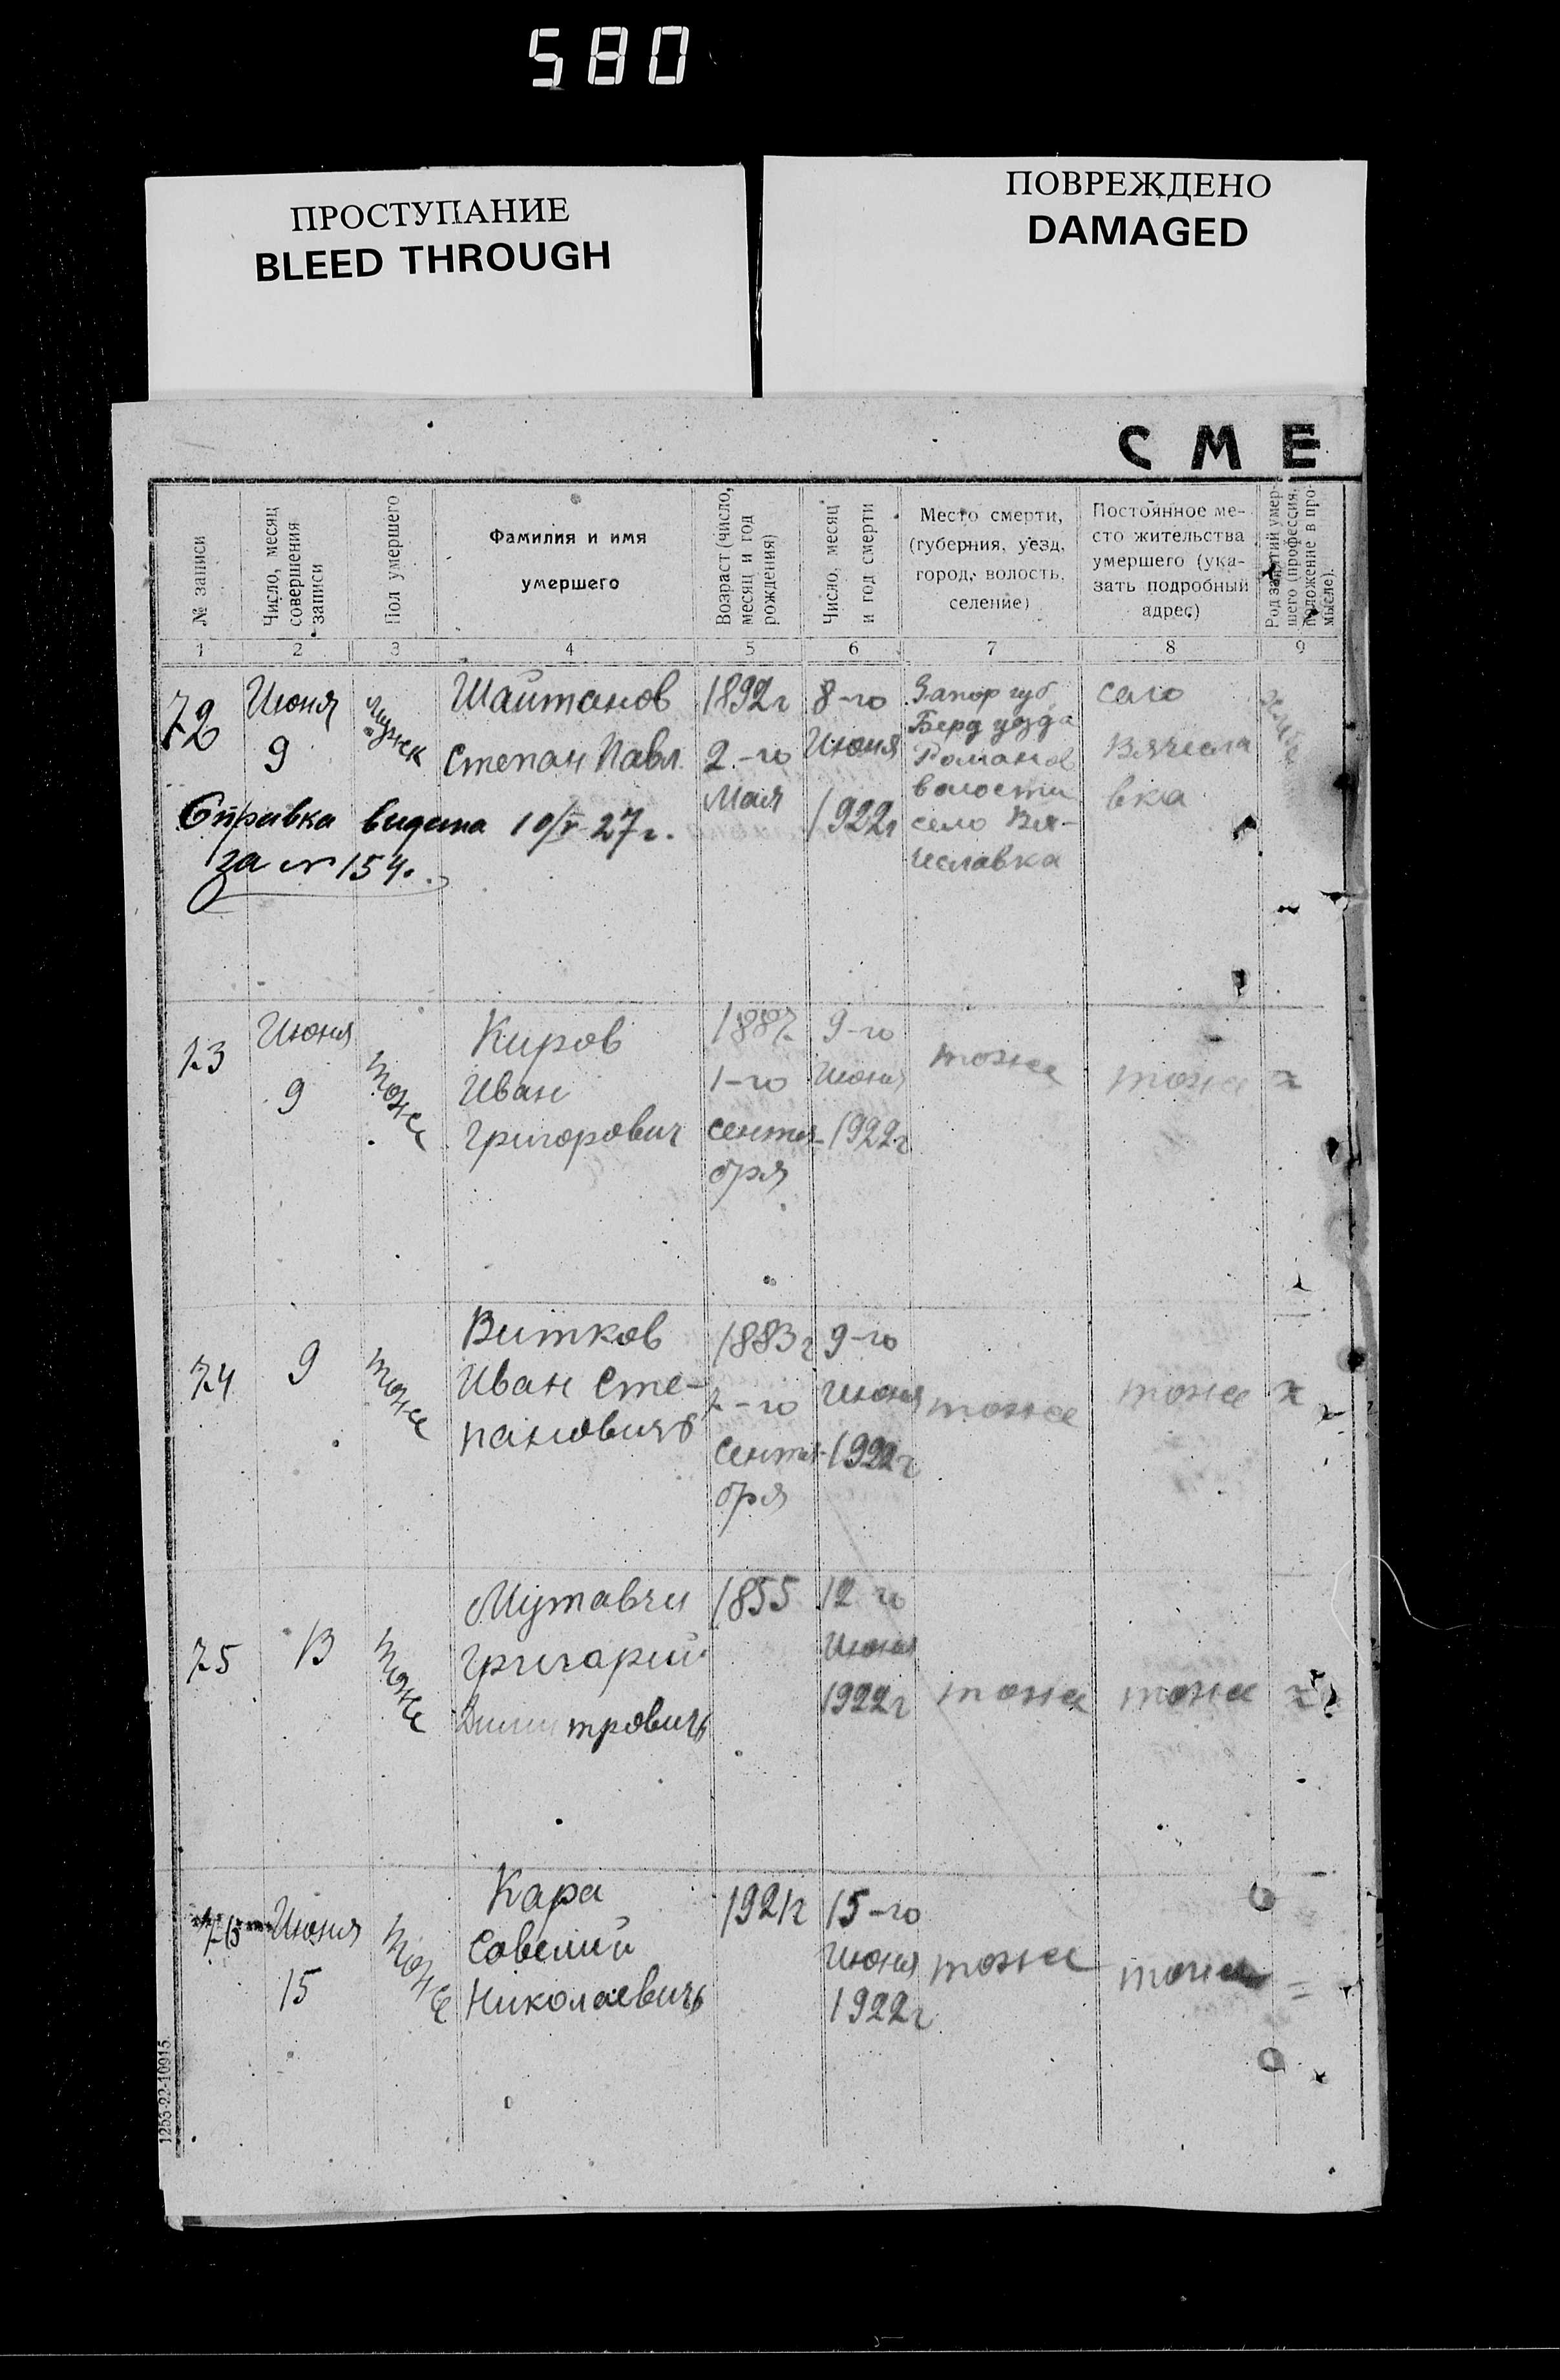 580
ПРОСТУПАНИЕ
BLEED THROUGH
ПОВРЕЖДЕНО
DAMAGED
СМЕ
№ записи
Число, месяц
совершения
записи
Пол умершего
Фамилия и имя
умершего
Возраст (число,
месяц и год
рождения)
Число, месяц
и год смерти
Место смерти,
(губерния, уезд,
город, волость,
селение)
Постоянное ме-
сто жительства
умершего (ука-
зать подробный
адрес)
Род занятий умер-
шего (профессия,
положение в про-
мысле).
1 2 3 4 5 6 7 8 9
72
Июня
9
мужск
Шайтанов
Степан Павл.
1892г
2-го
Мая
8-го
Июня
1922г
Запор губ
Берд уезда
Романов
волости
село Вя-
чеславка
село
Вячесла
вка
Справка видана 10/V 27г.
за № 154.
73
Июня
9
тоже
Киров
Иван
Григорович
1887
1-го
сентя-
бря
9-го
Июня
1922г
тоже
тоже
74
9
тоже
Витков
Иван Сте-
пановичъ
1883г
2-го
сентя-
бря
9-го
Июня
1922г
тоже
тоже
75
13
тоже
Мутавчи
Григарий
Димитровичъ
1855
12 го
Июня
1922г
тоже
тоже
76
Июня
15
тоже
Кара
Савелий
Николаевичъ
1921г
15-го
Июня
1922г
тоже
тоже
=
1253-22-10915